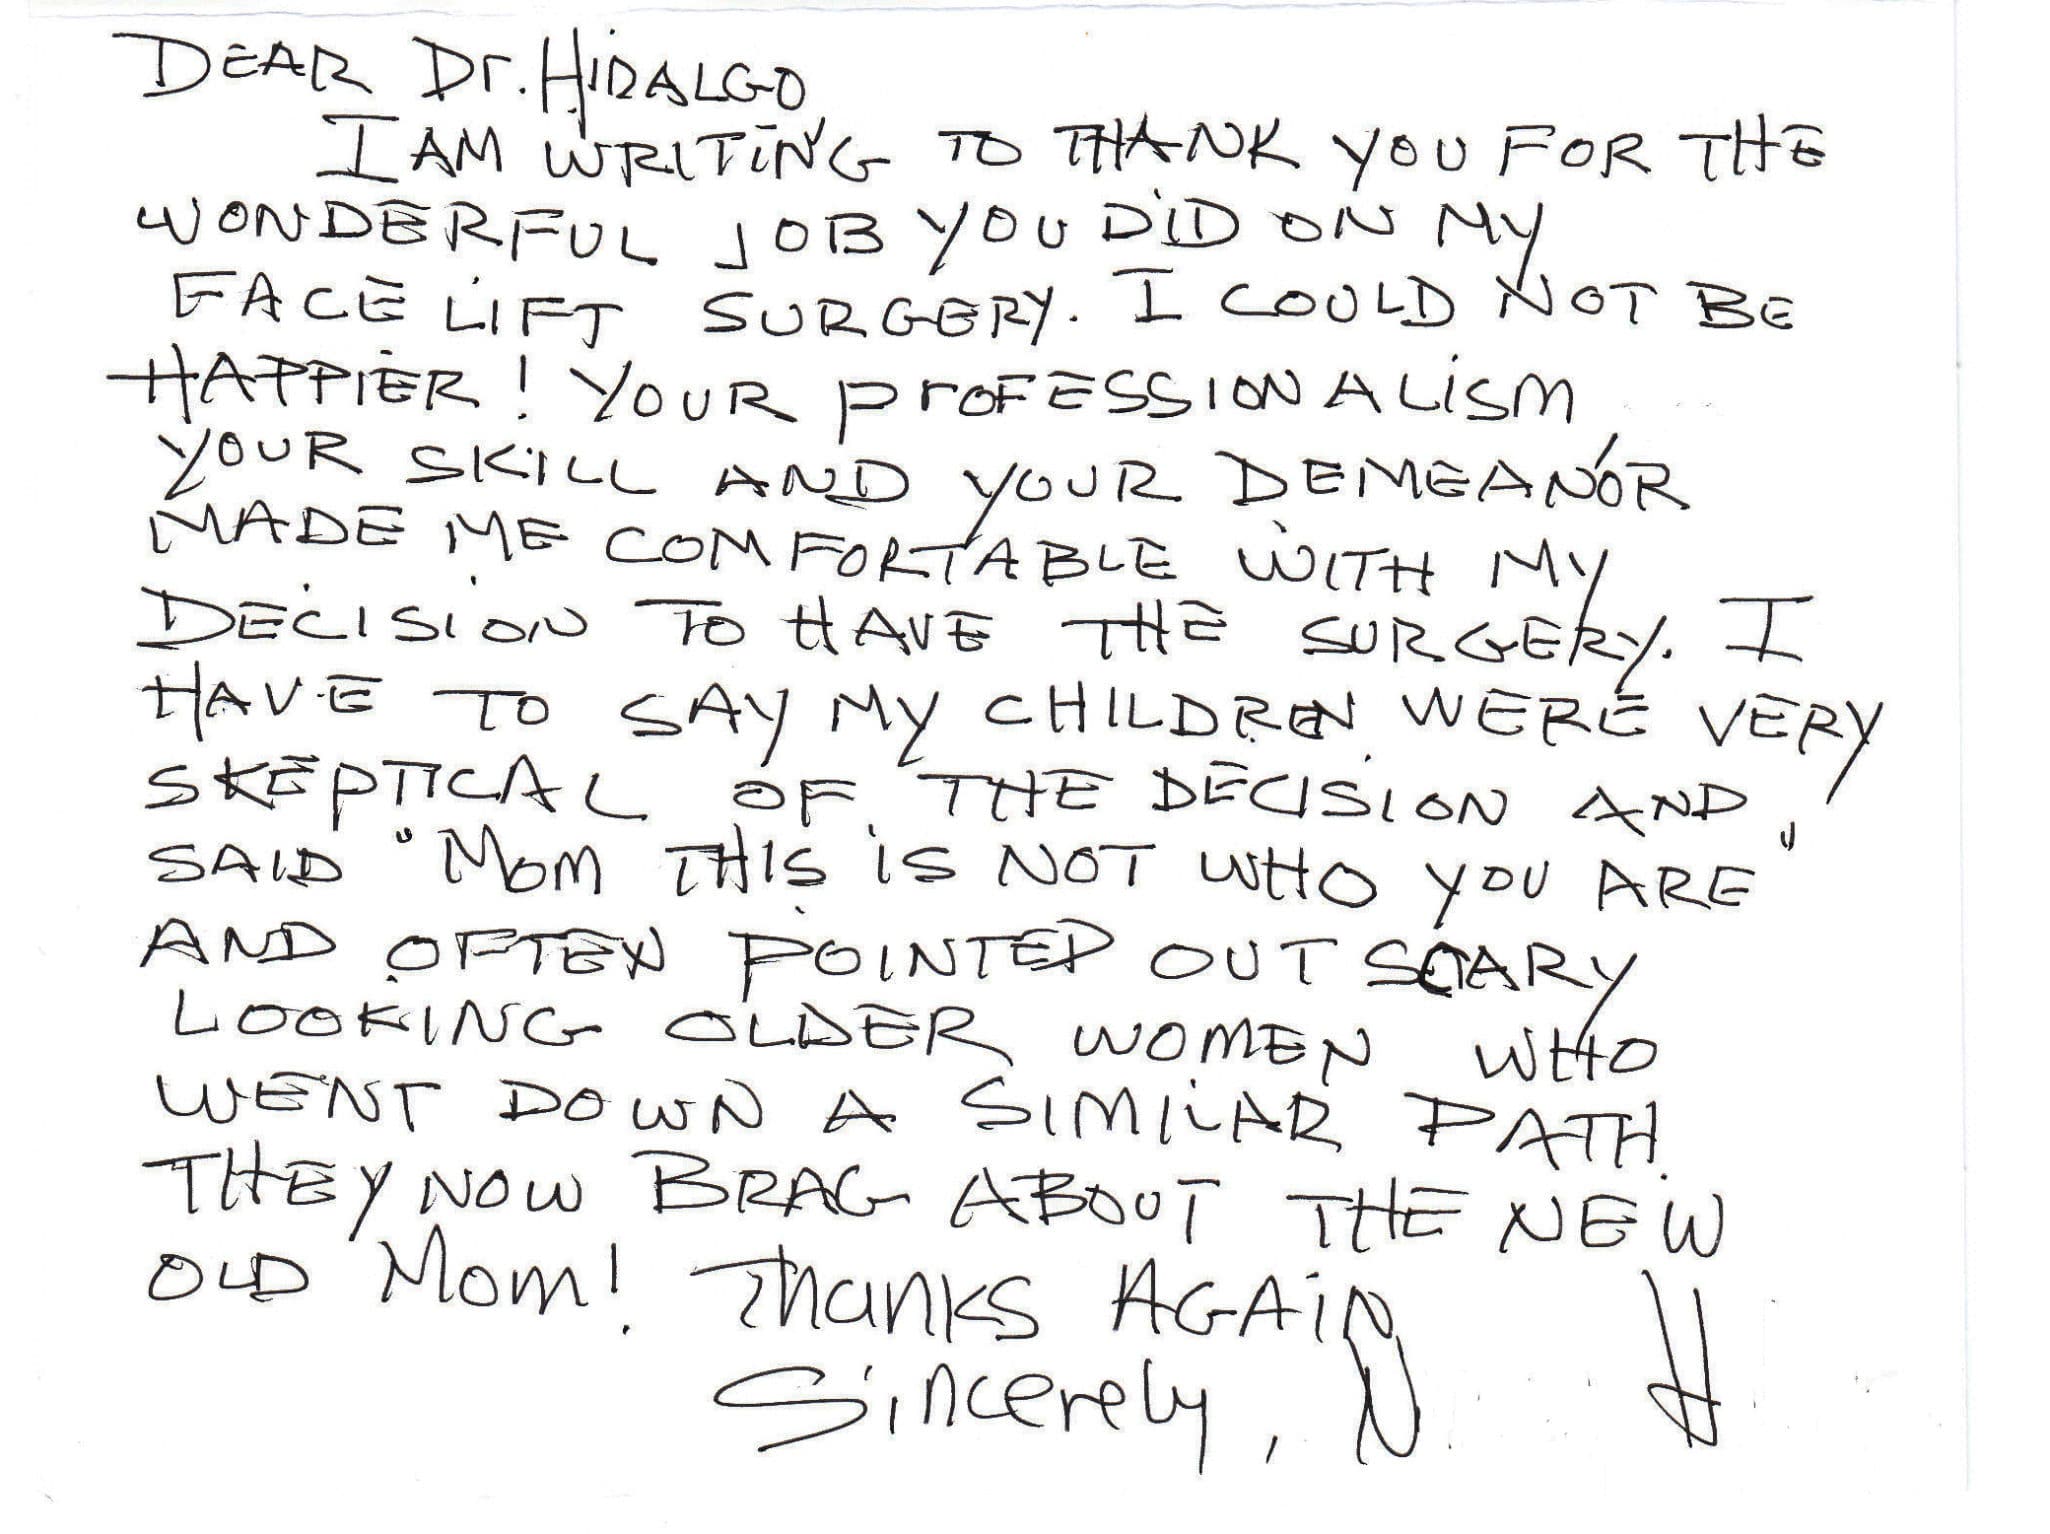 DEAR Dr. HIDALGO
I AM WRITING TO THANK YOU FOR THE
WONDERFUL JOB YOU DID ON MY
FACE LIFT SURGERY. I COULD NOT BE
HAPPIER! YOUR PROFESSIONALISM
YOUR SKILL AND YOUR DEMEANOR
MADE ME COMFORTABLE WITH MY
DECISION TO HAVE THE SURGERY. I
HAVE TO SAY MY CHILDREN WERE VERY
SKEPTICAL OF THE DECISION AND
SAID "MOM THIS IS NOT WHO YOU ARE"
AND OFTEN POINTED OUT SCARY
LOOKING OLDER WOMEN WHO
WENT DOWN A SIMILAR PATH.
THEY NOW BRAG ABOUT THE NEW
OLD MOM! Thanks AGAIN
Sincerely, N H